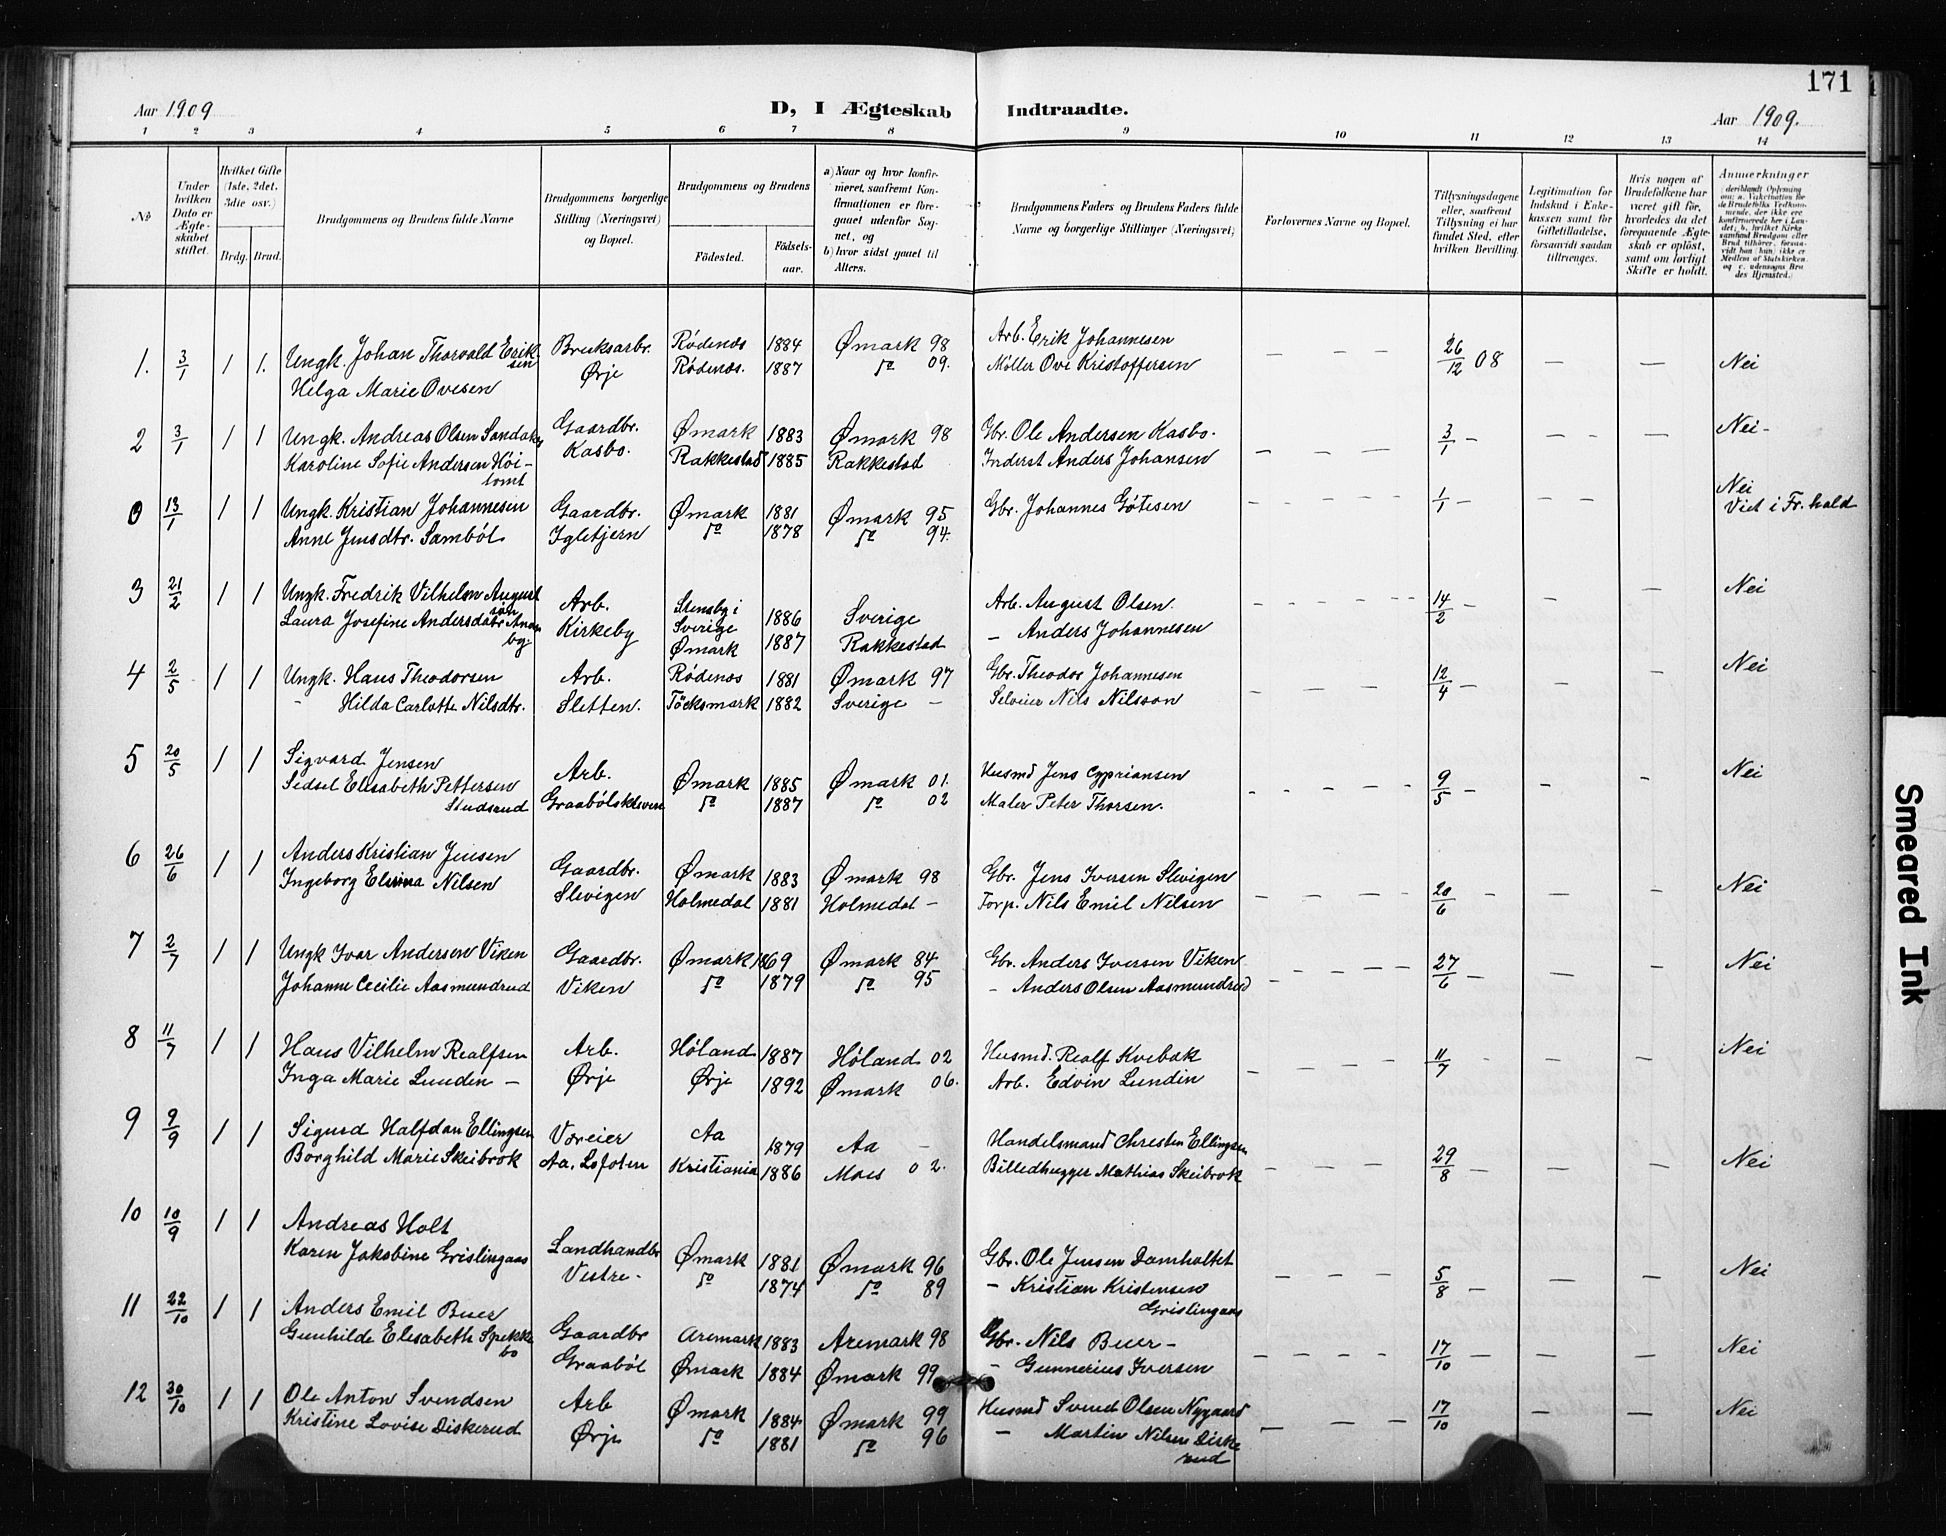 171
Aar 1909
D, I Ægteskab Indtraadte.
Aar 1909.
1 2 3 4 5 6 7 8 9 10 11 12 13 14
No
Under hvilken Dato er Ægteskabet stiftet.
Hvilket Gifte (1ste, 2det, 3die osv.)
Brdg. Brud.
Brudgommens og Brudens fulde Navne
Brudgommens borgerlige Stilling (Næringsvei) og Bopæl.
Brudgommens og Brudens
Fødested.
Fødselsaar.
a) Naar og hvor konfirmeret, saafremt Konfirmationen er foregaaet udenfor Sognet, og
b) hvor sidst gaaet til Alters.
Brudgommens Faders og Brudens Faders fulde Navne og borgerlige Stillinger (Næringsvei)
Forlovernes Navne og Bopæl.
Tillysningsdagene eller, saafremt Tillysning ei har fundet Sted, efter hvilken Bevilling.
Legitimation for Indskud i Enkekassen samt for Giftetilladelse, forsaavidt saadan tiltrænges.
Hvis nogen af Brudefolkene har været gift før, hvorledes da det foregaaende Ægteskab er opløst, samt om lovligt Skifte er holdt.
Anmærkninger
(deriblandt Oplysning om: a. Vakcination for de Brudefolks Vedkommende, der ikke ere konfirmerede her i Landet; b. hvilket Kirkesamfund Brudgom eller Brud tilhører, forsaavidt han (hun) ikke er Medlem af Statskirken og c. udensogns Brudes Hjemsted.)
1. 3/1 1 1. Ungk. Johan Thorvald Eriksen Bruksarbr. Rødenæs 1884 Ømark 98 Arb. Erik Johannesen 26/12 08 — — Nei
Helga Marie Ovesen Ørje Rødenæs. 1887 do 09. Møller Ove Kristoffersen
2 3/1 1 1 Ungk. Andreas Olsen Sandaker Gaardbr. Ømark 1883 Ømark 98 Gbr. Ole Andersen Kasbo. 3/1 — Nei-
Karoline Sofie Andersen Høitomt Kasbo. Rakkestad 1885 Rakkestad Inderst Anders Johansen
0 13/1 1 1 Ungk. Kristian Johannesen Gaardbr. Ømark 1881 Ømark 95 Gbr. Johannes Gøtesen 1/1 — Nei
Anne Jensdtr. Sambøl Igletjern do 1878 do 94. Viet i Fr.hald
3 21/2 1 1 Ungk. Fredrik Vilhelm Augustson Arb. Stensby i Sverige 1886 Sverige Arb. August Olsen 14/2 — Nei
Laura Josefine Andersdtr. Kirkeby Ømark 1887 Rakkestad — Anders Johannesen
4 2/5 1 1 Ungk. Hans Theodorsen Arb. Rødenæs 1881 Ømark 97 Gbr. Theodor Johannesen 12/4 — Nei
— Hilda Carlotte Nilsdtr. Sletten. Töcksmark 1882 Sverige — Selveier Nils Nilsson
5 20/5 1 1 Sigvard Jensen Arb. Ømark 1885 Ømark 01. Husmd Jens Cypriansen 9/5 — Nei
Sidsel Elisabeth Pettersen Studsrud Graabølskleven do 1887 do 02 Maler Peter Thorsen.
6 26/6 1 1 Anders Kristian Jensen Gaardbr. Ømark 1883 Ømark 98 Gbr. Jens Iversen Slevigen 20/6 — Nei
Ingeborg Nilsen Slevigen Holmedal 1881 Holmedal — Torp. Nils Emil Nilsen
7 2/7 1 1 Ungk Ivar Andersen Viken Gaardbr. Ømark 1869 Ømark 84 Gbr. Anders Iversen Viken 27/6 — Nei
Johanne Cecilie Aasmundrud Viken do 1879 do 95 — Anders Olsen Aasmundrud
8 11/7 1 1 Hans Vilhelm Realfsen Arb. Høland 1887 Høland 02 Husmd. Realf Kvebæk 11/7 — Nei
Inga Marie Lunden — Ørje Ørje 1892 Ømark 06. Arb. Edvin Lundin
9 9/9 1 1 Sigurd Halfdan Ellingsen Væreier Aa 1879 Aa — Handelsmand Christen Ellingsen 29/8 — Nei
Borghild Marie Skeibrok Aa, Lofoten Kristiania 1886 Moss 02. Billedhugger Mathias Skeibrok
10 10/9 1 1 Andreas Holt Landhandbr Ømark 1881 Ømark 96 Gbr. Ole Jensen Damholtet 5/8 — Nei
Karen Jakobine Grislingaas Vestre- do 1874 do 89 — Kristian Kristensen Grislingaas
11 22/10 1 1 Anders Emil Buer Gaardbr Aremark 1883 Aremark 98 Gbr. Nils Buer — 17/10 — Nei
Gunhilde Elisabeth Spekkebo Graabøl Ømark 1884 Ømark 99 — Gunnerius Iversen
12 30/10 1 1 Ole Anton Svendsen Arb Ømark 1884 Ømark 99 Husmd Svend Olsen Nygaard 17/10 — Nei
Kristine Lovise Diskerud Ørje do 1881 do 96 — Martin Nilsen Diskerud
Smeared Ink